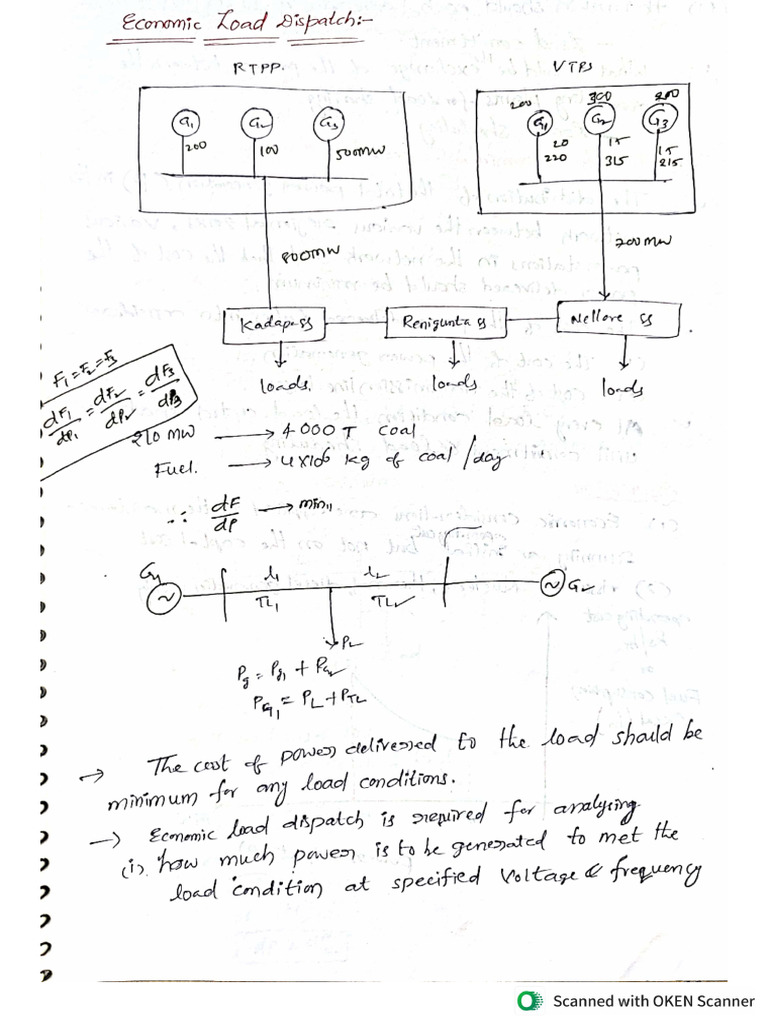 Economic Load Dispatch:-
RTPP.
VTPS
G1
G2
G3
200
100
500MW
200
300
200
G1
G2
G3
20
220
15
315
15
215
800MW
200MW
Kadapa ss
Renigunta ss
Nellore ss
loads.
loads
loads
F1 = F2 = F3
dF1/dP1 = dF2/dP2 = dF3/dP3
210 MW → 4000T coal
Fuel. → 4x10⁶ kg of coal/day
∴ dF/dP → min
G1
l1
l2
G2
TL1
TL2
PL
Pg = Pg1 + PG2
PG1 = PL + PTL
→ The cost of power delivered to the load should be
minimum for any load conditions.
→ Economic load dispatch is required for analysing
(i). how much power is to be generated to met the
load condition at specified voltage & frequency
Scanned with OKEN Scanner